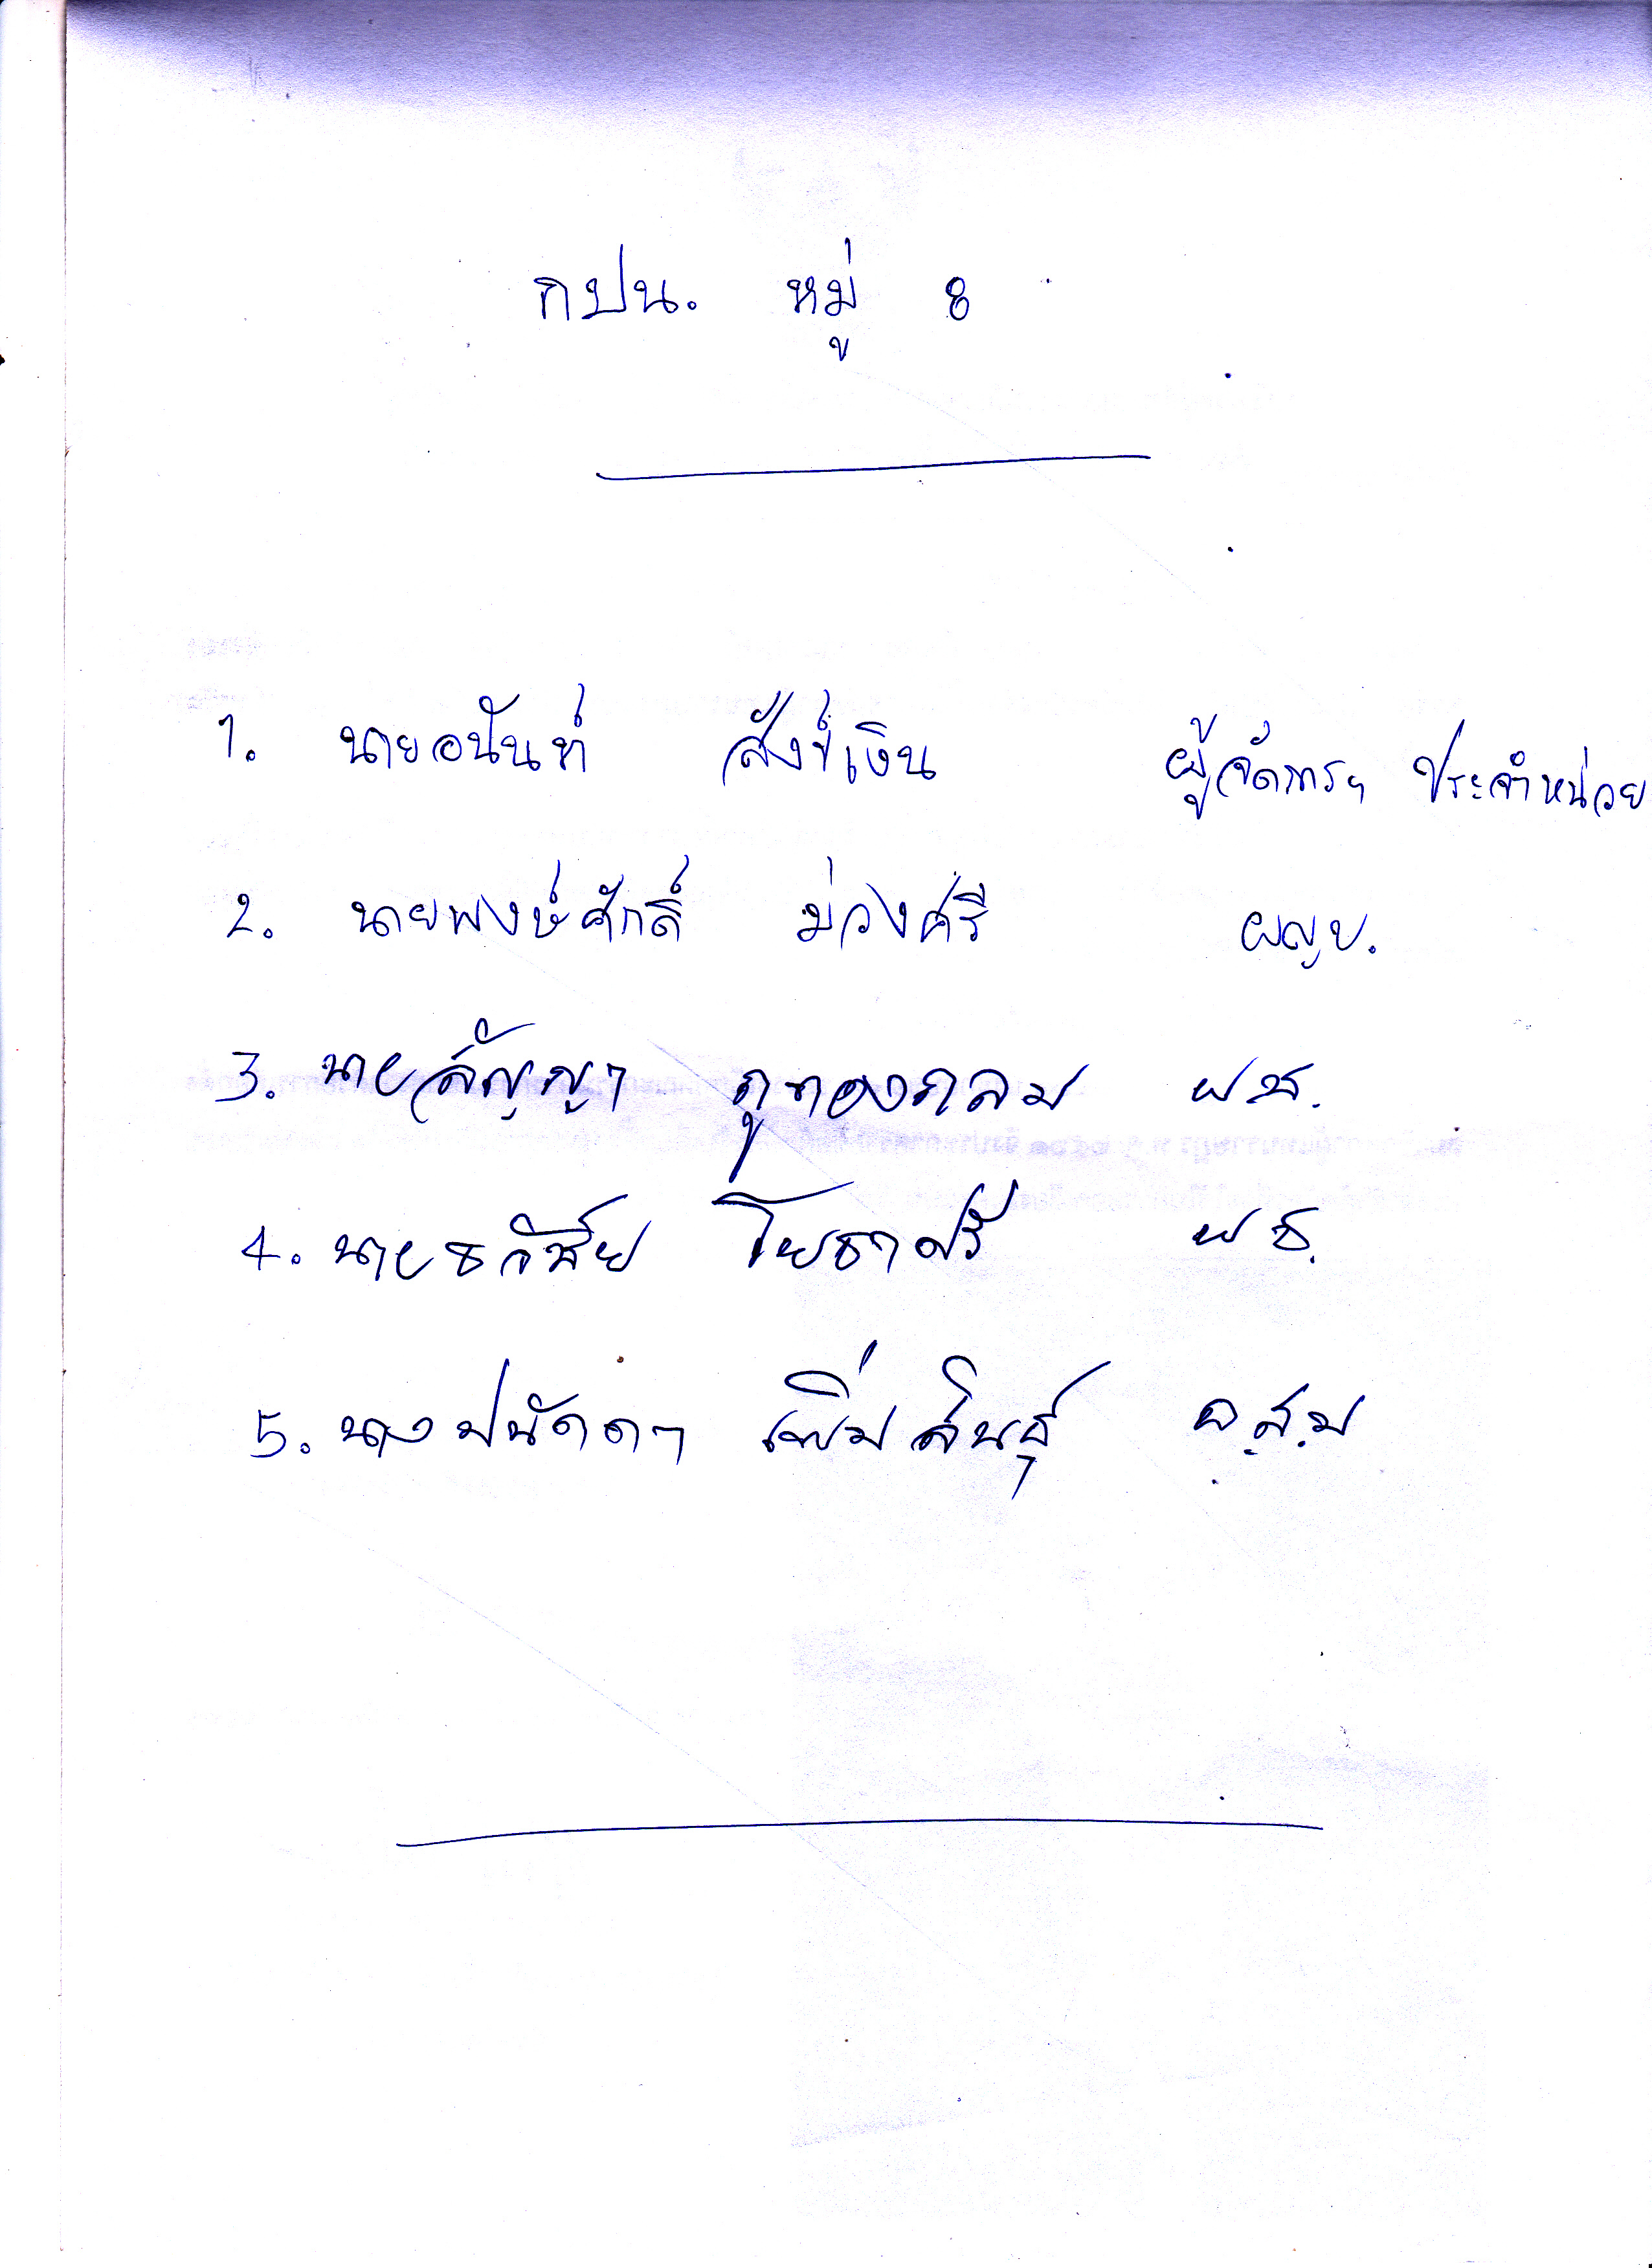 กปน. หมู่ 8
1. นายอนันท์ สังข์เงิน ผู้จัดการฯ ประจำหน่วย
2. นายพงษ์ศักดิ์ ม่วงศรี ผญบ.
3. นายสัญญา ภูทองกลม ผช.
4. นายธวัชชัย โยธาศรี ผช.
5. นางปนัดดา เพิ่มสินธุ์ อ.ส.ม